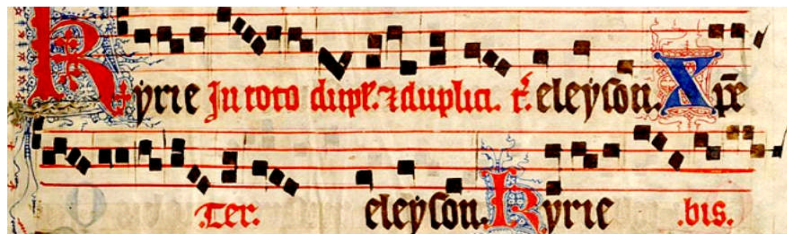 Kyrie In toto dupl'. ⁊ duplici. eleyson. Xp̄e
.Ter. eleyson. Kyrie .bis.